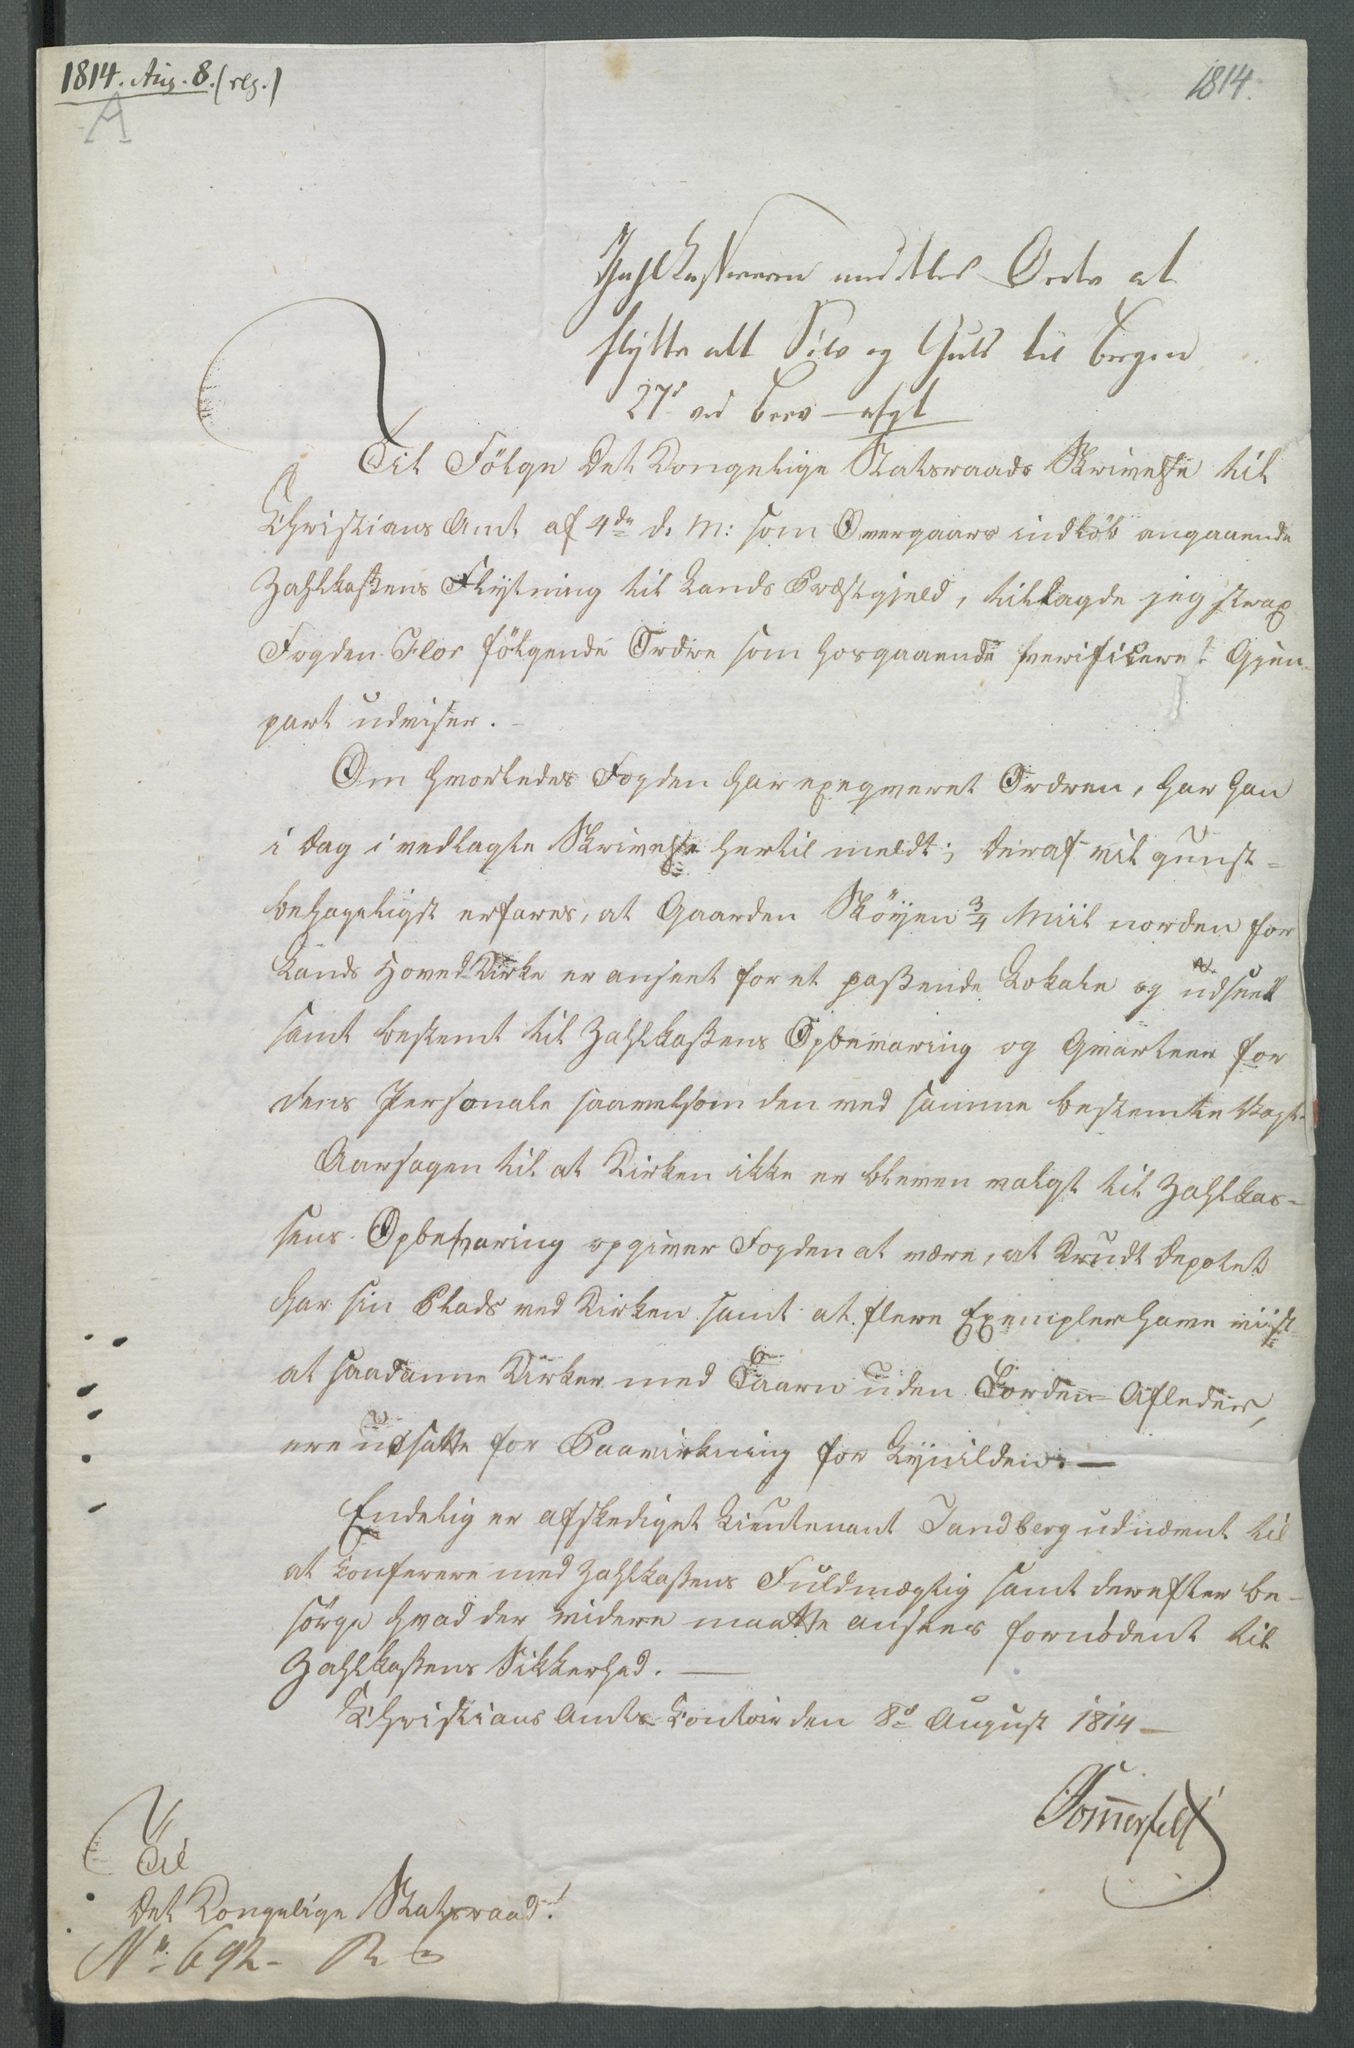 1814. Aug. 8. (rg.)
1814.
A
Zahlkasseren Ordre at
flytte alt Sölv og Guld til Bergen
27d ved Brev
Til Fölge Det Kongelige Statsraads Skrivelse til
Christians Amt af 4de d. M: som Overgaars indlöb angaaende
Zahlkaßens Flytning til Lands Præstgjeld, tillagde jeg strax
Fogden Flor fölgende Ordre som hosgaaende verificere? Gjen-
part udviser. -
Om hvorledes Fogden har exeqveret Ordren, har han
i Dag i vedlagte Skrivelse hertil meldt; deraf vil gunst-
behageligst erfares, at Gaarden Sköyen 3/4 Miil norden for
Lands Hoved Kirke er anseet for et paßende Lokale og udseet
samt bestemt til Zahlkaßens Opbevaring og Qvarteer for
dens Personale saavelsom den ved samme bestemte Vagt.
Aarsagen til at Kirken ikke er bleven valgt til Zahlkas-
sens Opbevaring opgiver Fogden at være, at Krudt Depotet
har sin Plads ved Kirken samt at flere Exempler have viist
at saadanne Kirker med Taarn uden Torden-Afleder,
ere udsatte for Paavirkning for Lynilden. —
Endelig er afskediget Lieutenant Sandberg udnævnt til
at Conferere med Zahlkaßens Fuldmægtig samt derefter be-
sörge hvad der videre maatte ansees fornödent til
Zahlkaßens Sikkerhed. —
Christians Amts Contoir den 8d August 1814 —
Sommerfelt
Til
Det Kongelige Statsraad!
No. 692 -